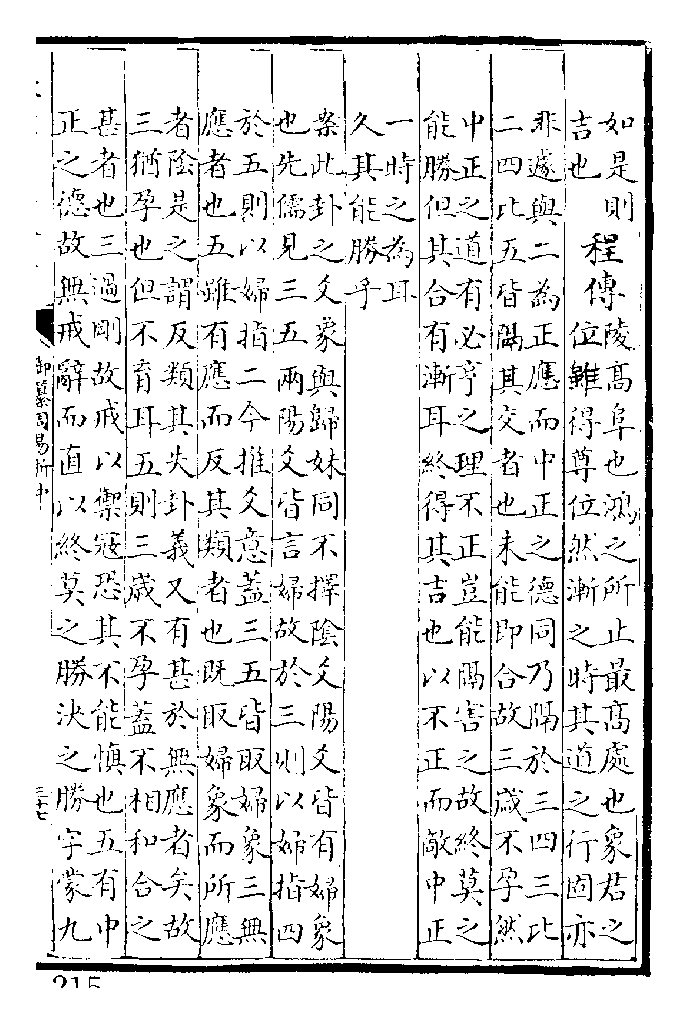 如是則
吉也
程傳
陵高阜也鴻之所止最高處也象君之
位雖得尊位然漸之時其道之行固亦
非遽與二為正應而中正之德同乃隔於三四三比
二四比五皆隔其交者也未能即合故三歲不孕然
中正之道有必亨之理不正豈能隔害之故終莫之
能勝但其合有漸耳終得其吉也以不正而敵中正
一時之為耳
久其能勝乎
案此卦之爻象與歸妹同不擇陰爻陽爻皆有婦象
也先儒見三五兩陽爻皆言婦故於三則以婦指四
於五則以婦指二今推爻意蓋三五皆取婦象三無
應者也五雖有應而反其類者也既取婦象而所應
者陰是之謂反類其失卦義又有甚於無應者矣故
三猶孕也但不育耳五則三歲不孕蓋不相和合之
甚者也三過剛故戒以禦寇恐其不能慎也五有中
正之德故無戒辭而直以終莫之勝決之勝字蒙九
御纂周易折中
三十七
215